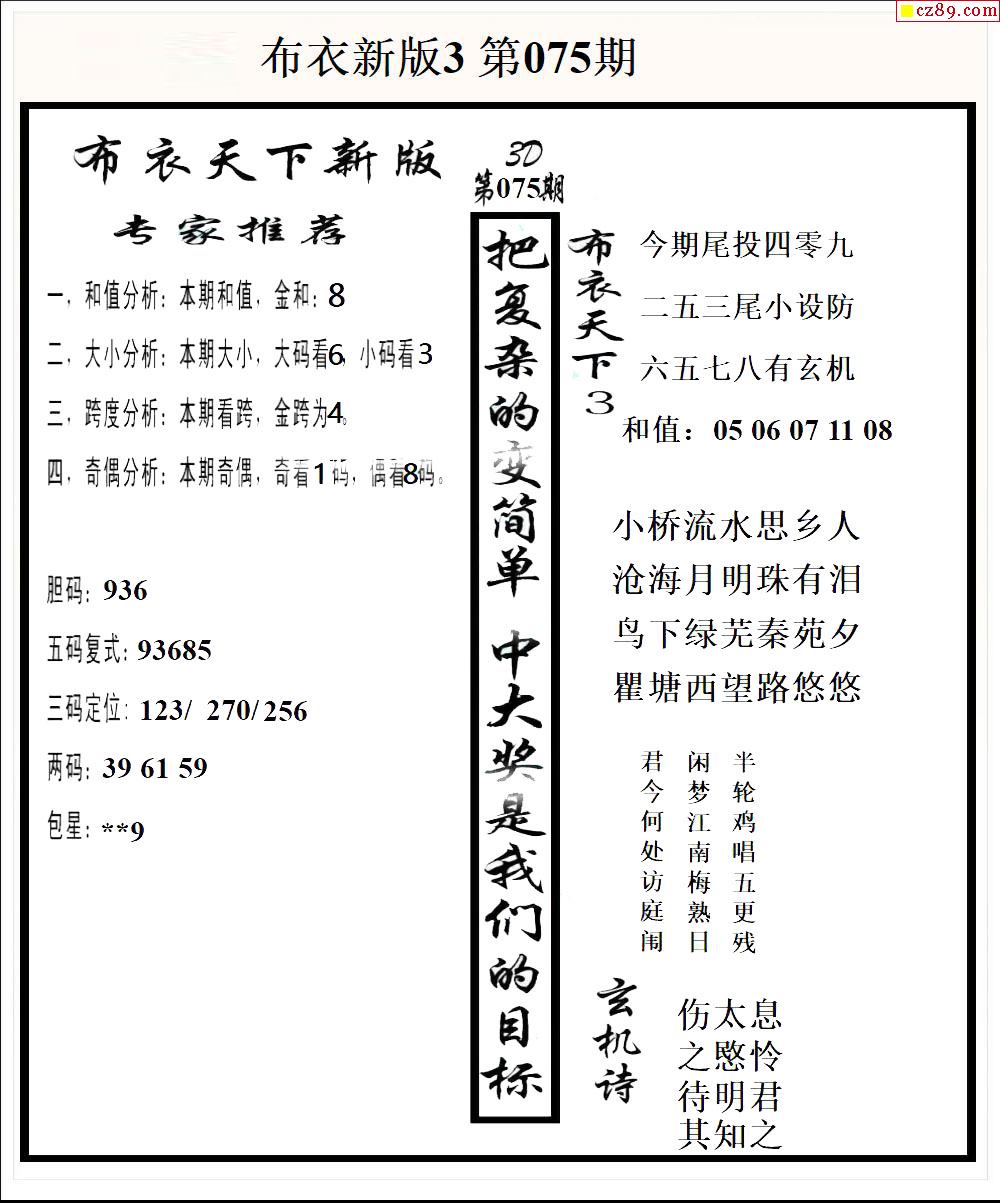 cz89.com
布衣新版3 第075期
布衣天下新版
专家推荐
一，和值分析：本期和值，金和：8
二，大小分析：本期大小，大码看6，小码看3
三，跨度分析：本期看跨，金跨为4。
四，奇偶分析：本期奇偶，奇看1码，偶看8码。
胆码：936
五码复式：93685
三码定位：123/ 270/256
两码：39 61 59
包星：**9
3D
第075期
把复杂的变简单 中大奖是我们的目标
布衣天下3
今期尾投四零九
二五三尾小设防
六五七八有玄机
和值：05 06 07 11 08
小桥流水思乡人
沧海月明珠有泪
鸟下绿芜秦苑夕
瞿塘西望路悠悠
半轮鸡唱五更残
闲梦江南梅熟日
君今何处访庭闱
玄机诗
伤太息
之愍怜
待明君
其知之